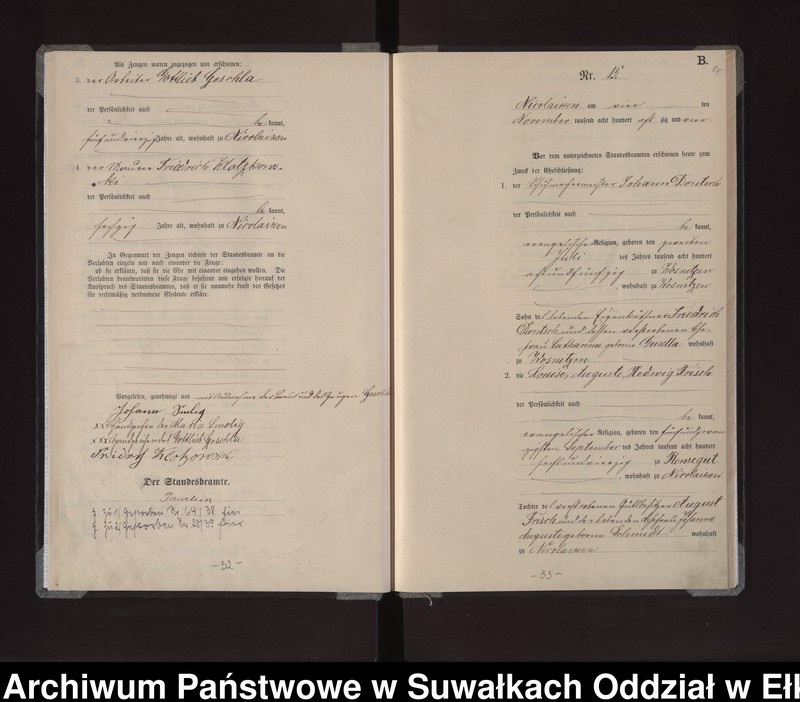 Als Zeugen waren zugezogen und erschienen:
3. der Arbeiter Gottlieb Geschla
der Persönlichkeit nach
be kannt,
fünfundvierzig Jahre alt, wohnhaft zu Nicolaiken
4. der Maurer Friedrich
der Persönlichkeit nach
be kannt,
sechzig Jahre alt, wohnhaft zu Nicolaiken
In Gegenwart der Zeugen richtete der Standesbeamte an die
Verlobten einzeln und nach einander die Frage:
ob sie erklären, daß sie die Ehe mit einander eingehen wollen. Die
Verlobten beantworteten diese Frage bejahend und erfolgte hierauf der
Ausspruch des Standesbeamten, daß er sie nunmehr kraft des Gesetzes
für rechtmäßig verbundene Eheleute erkläre.
Vorgelesen, genehmigt und mit Ausnahme der Braut und des Zeugen Geschla
Johann
xxx Handzeichen der Martha
xxx Handzeichen des Gottlieb Geschla
Der Standesbeamte.
z. zu 1) Gestorben Nr. 64/38 hier
z. zu 2) Gestorben Nr. 28/39 hier
- 32 -
B.
Nr. 15
Nicolaiken am vier ten
November tausend acht hundert acht zig und vier
Vor dem unterzeichneten Standesbeamten erschienen heute zum
Zweck der Eheschließung:
1. der Schuhmachermeister Johann
der Persönlichkeit nach
be kannt,
evangelischer Religion, geboren den zweiten
Juli des Jahres tausend acht hundert
achtundfünfzig zu Wosnitzen
, wohnhaft zu Wosnitzen
Sohn des lebenden Eigenkäthners Friedrich
und dessen verstorbenen Ehe-
frau Catharina geborne wohnhaft
zu Wosnitzen
2. die Louise, Auguste, Hedwig Frisch
der Persönlichkeit nach
be kannt,
evangelischer Religion, geboren den fünfundzwan
zigsten September des Jahres tausend acht hundert
sechsundvierzig zu
, wohnhaft zu Nicolaiken
Tochter des verstorbenen Gutsbesitzer August
Frisch und der lebenden Ehefrau Johanne
Auguste geborne Schmidt wohnhaft
zu Nicolaiken
- 33 -
Archiwum Państwowe w Suwałkach Oddział w Ełk